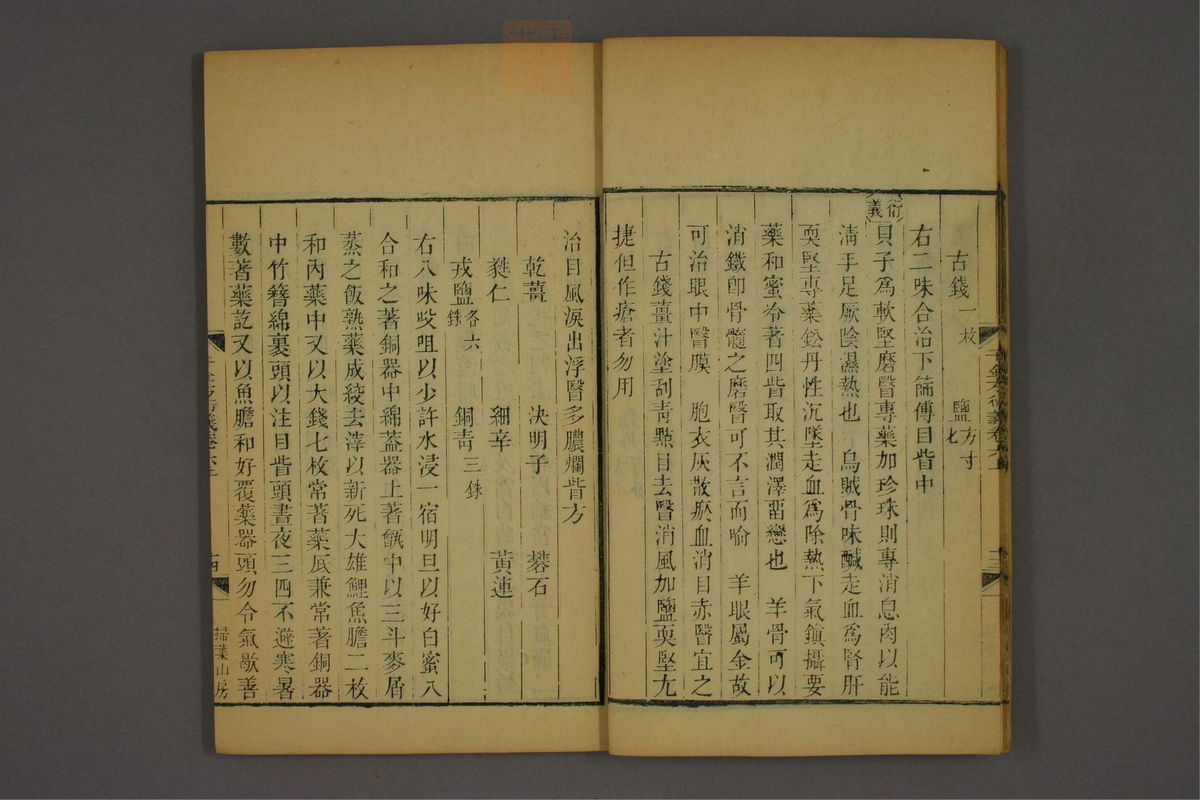 古錢一枚 鹽方寸匕
右二味合治下篩傅目眥中
衍義
貝子為軟堅磨醫專藥加珍珠則專消息肉以能
清手足厥陰濕熱也 烏賊骨味鹹走血為腎肝
耎堅專藥鈆丹性沉墜走血為除熱下氣鎮攝要
藥和蜜令著四眥取其潤澤畱戀也 羊骨可以
消鐵卽骨髓之磨醫可不言而喻 羊眼屬金故
可治眼中醫膜 胞衣灰散瘀血消目赤醫宜之
古錢薑汁塗刮青點目去醫消風加鹽耎堅尢
捷但作瘡者勿用
千金方衍義卷六上
治目風淚出浮醫多膿爛眥方
乾薑 決明子 礬石
蕤仁 細辛 黃連
戎鹽各六銖 銅青三銖
右八味㕮咀以少許水浸一宿明旦以好白蜜八
合和之著銅器中綿蓋器上著甑中以三斗麥屑
蒸之飯熟藥成綾去滓以新死大雄鯉魚膽二枚
和內藥中又以大錢七枚常著藥底兼常著銅器
中竹簪綿裹頭以注目眥頭晝夜三四不避寒暑
數著藥訖又以魚膽和好覆藥器頭勿令氣歇善
十四
掃葉山房